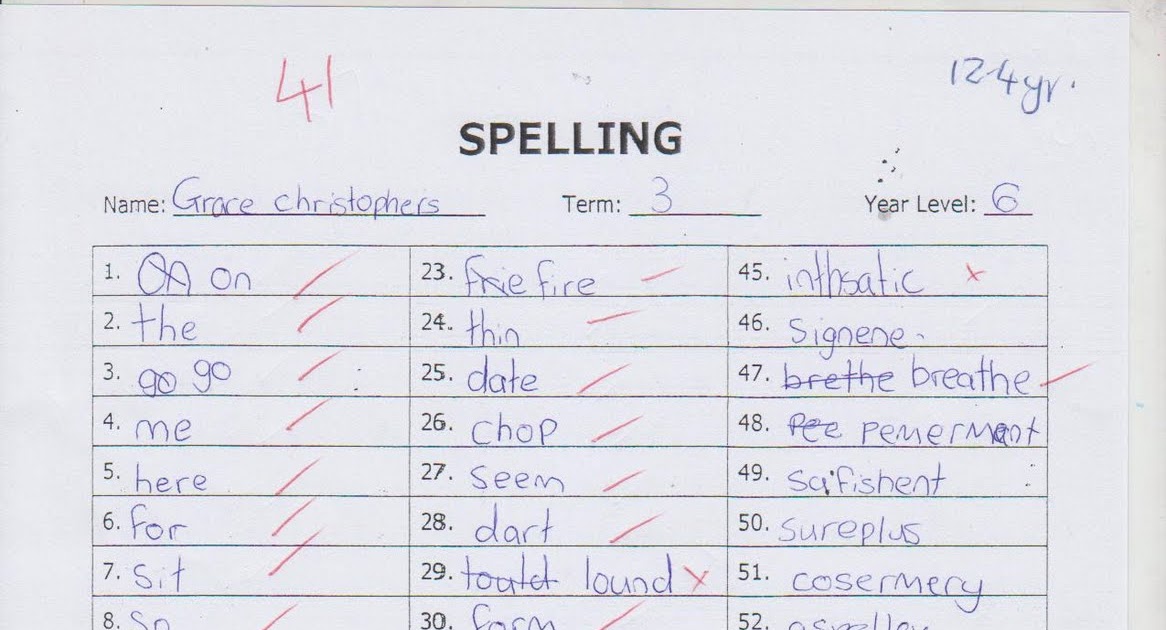 41
12·4yr.
SPELLING
Name: Grace christophers Term: 3 Year Level: 6
1. on 23. fire 45. inthsatic
2. the 24. thin 46. Signene
3. go go 25. date 47. brethe breathe
4. me 26. chop 48. Pee pemerment
5. here 27. seem 49. safishent
6. for 28. dart 50. sureplus
7. sit 29. lound 51. cosermery
8. so 30. farm 52.